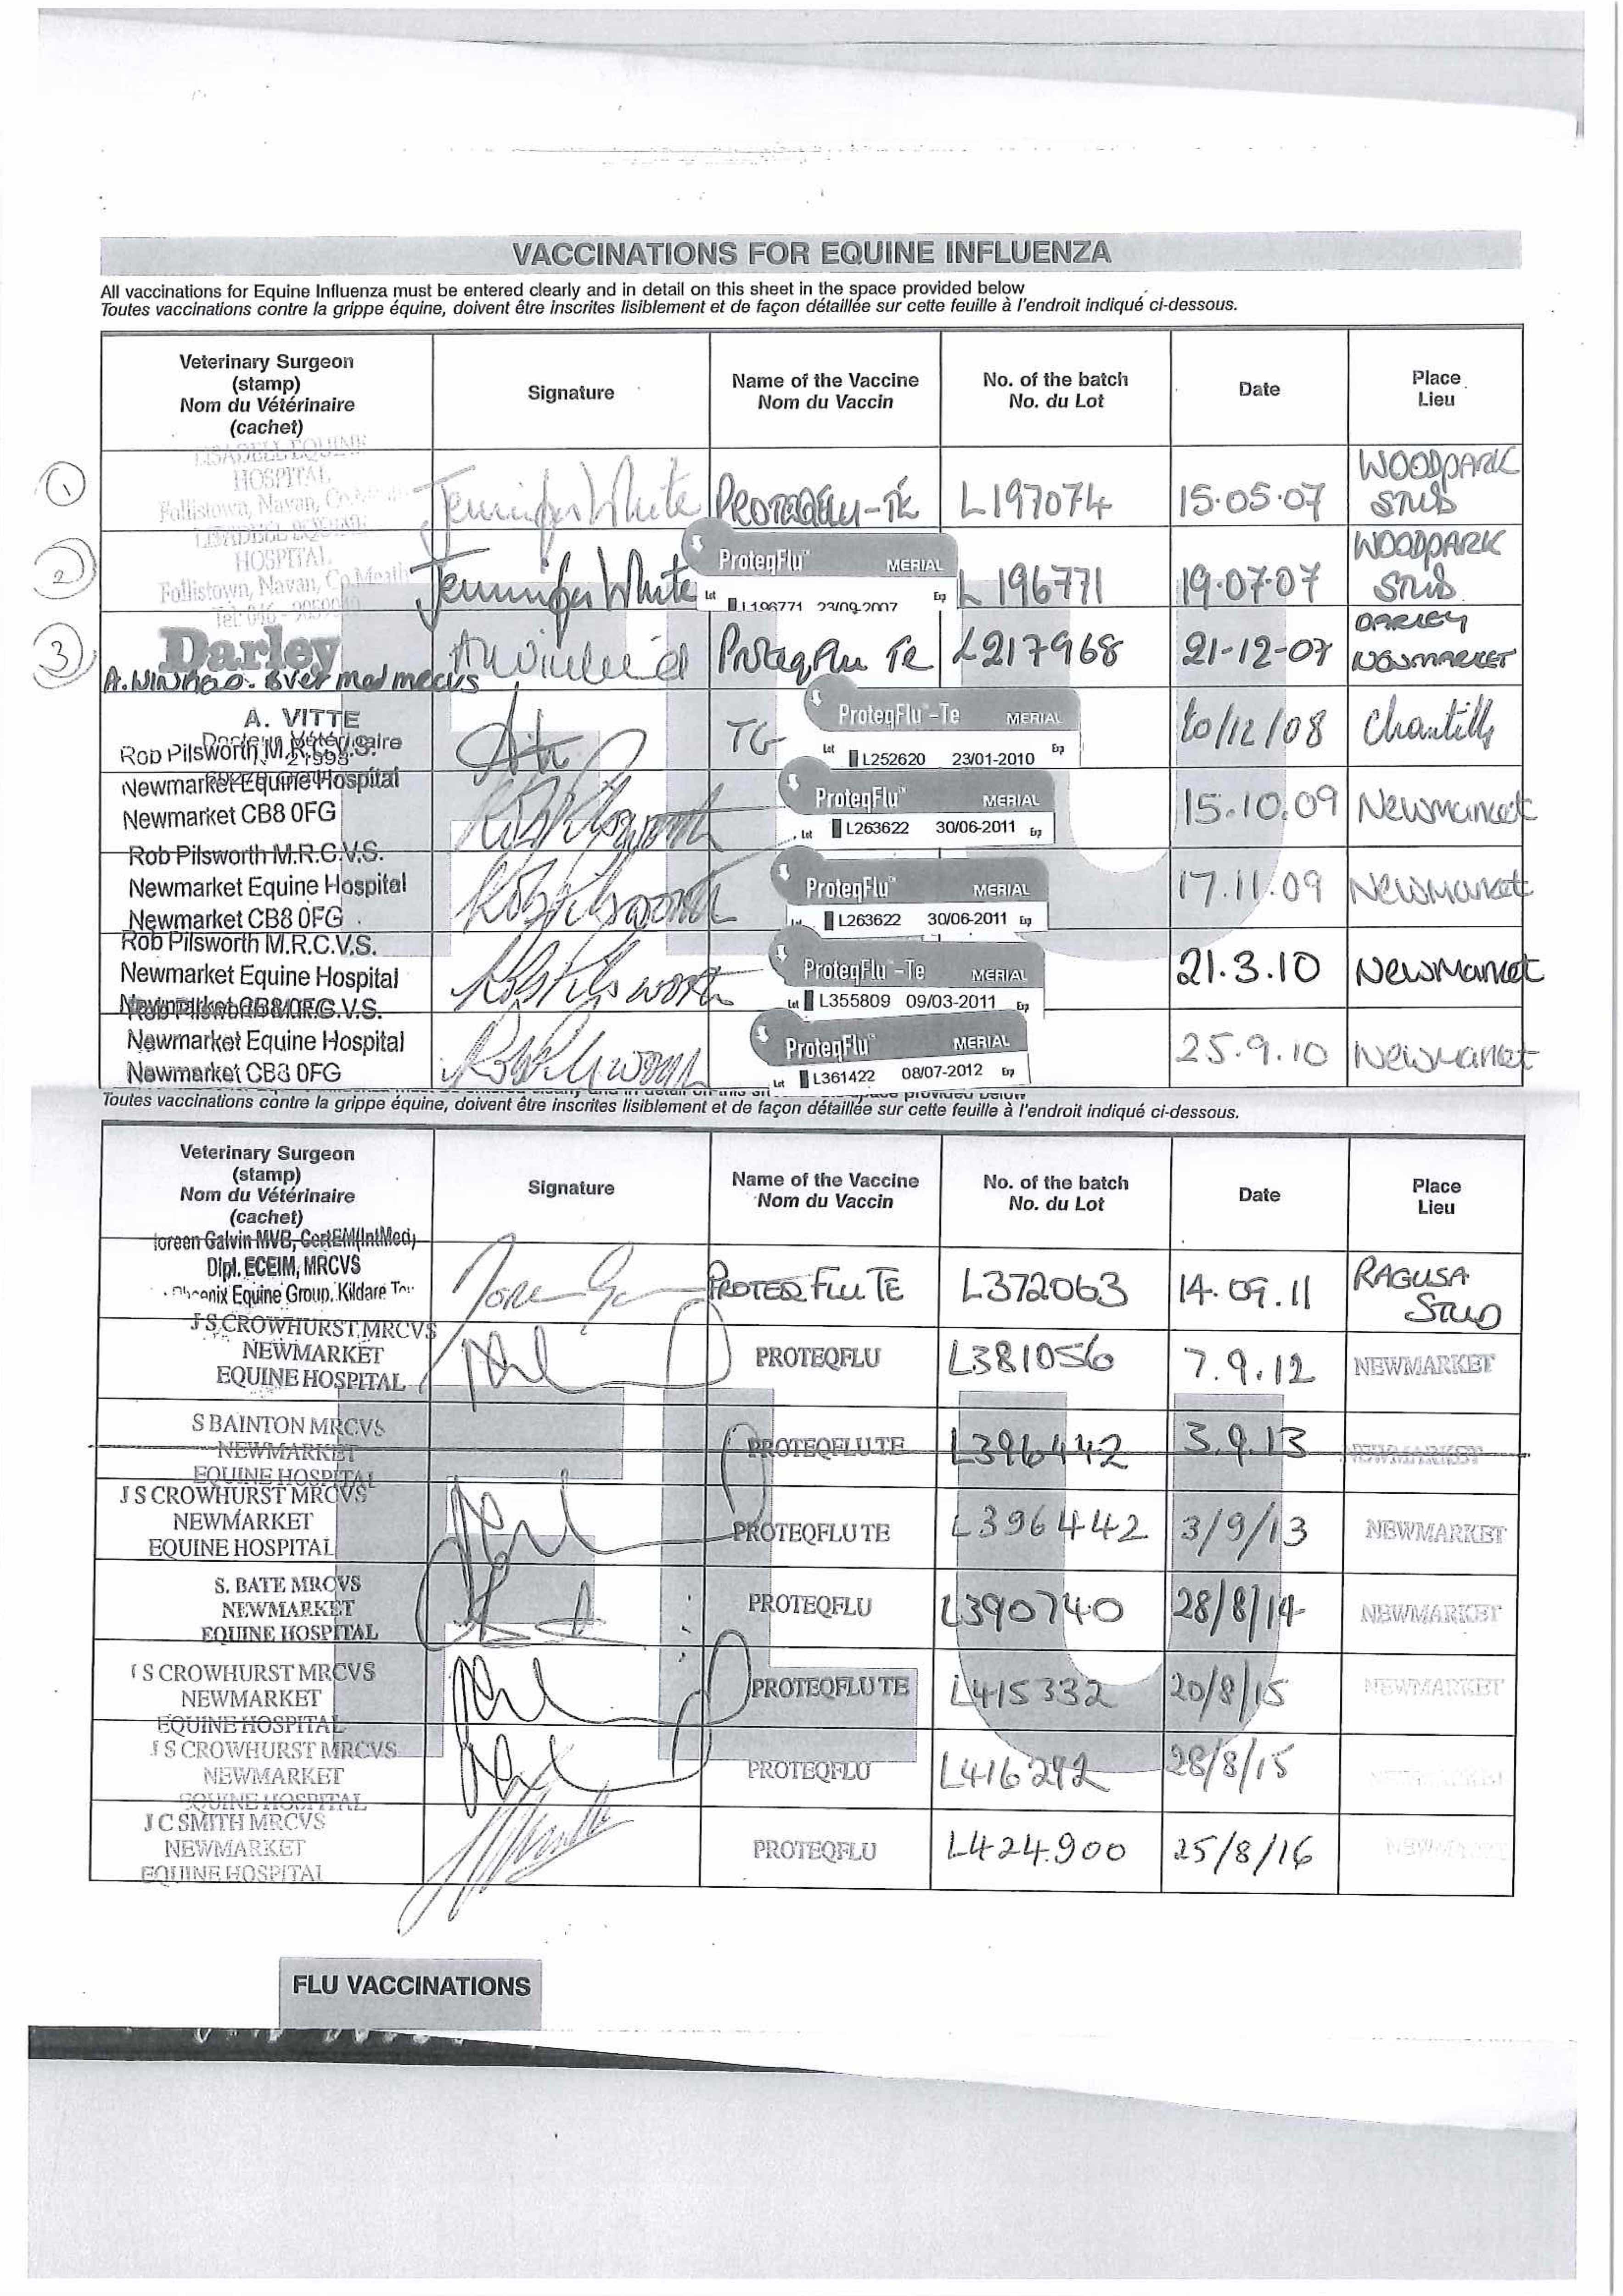 VACCINATIONS FOR EQUINE INFLUENZA
All vaccinations for Equine Influenza must be entered clearly and in detail on this sheet in the space provided below
Toutes vaccinations contre la grippe équine, doivent être inscrites lisiblement et de façon détaillée sur cette feuille à l'endroit indiqué ci-dessous.
Veterinary Surgeon (stamp) Nom du Vétérinaire (cachet) Signature Name of the Vaccine Nom du Vaccin No. of the batch No. du Lot Date Place Lieu
1 LISADELL EQUINE HOSPITAL Follistown, Navan, Co Meath Jennifer White PROTEQFLU-TE L197074 15.05.07 WOODPARK STUD
2 LISADELL EQUINE HOSPITAL Follistown, Navan, Co Meath Jennifer White ProteqFlu MERIAL Lot L196771 23/09-2007 Exp L196771 19.07.07 WOODPARK STUD
3 Darley ProteqFlu Te L217968 21-12-07 DARLEY NEWMARKET
A. VITTE Docteur Vétérinaire TG ProteqFlu-Te MERIAL Lot L252620 23/01-2010 Exp 10/12/08 Chantilly
Rob Pilsworth M.R.C.V.S. Newmarket Equine Hospital Newmarket CB8 0FG ProteqFlu MERIAL Lot L263622 30/06-2011 Exp 15.10.09 Newmarket
Rob Pilsworth M.R.C.V.S. Newmarket Equine Hospital Newmarket CB8 0FG ProteqFlu MERIAL L263622 30/06-2011 Exp 17.11.09 Newmarket
Rob Pilsworth M.R.C.V.S. Newmarket Equine Hospital Newmarket CB8 0FG ProteqFlu-Te MERIAL Lot L355809 09/03-2011 Exp 21.3.10 Newmarket
Newmarket Equine Hospital Newmarket CB8 0FG ProteqFlu MERIAL Lot L361422 08/07-2012 Exp 25.9.10 Newmarket
Toutes vaccinations contre la grippe équine, doivent être inscrites lisiblement et de façon détaillée sur cette feuille à l'endroit indiqué ci-dessous.
Veterinary Surgeon (stamp) Nom du Vétérinaire (cachet) Signature Name of the Vaccine Nom du Vaccin No. of the batch No. du Lot Date Place Lieu
Galvin MVB, CertEM(IntMed) Dipl. ECEIM, MRCVS Equine Group, Kildare PROTEQ FLU TE L372063 14.09.11 RAGUSA STUD
J S CROWHURST MRCVS NEWMARKET EQUINE HOSPITAL PROTEQFLU L381056 7.9.12 NEWMARKET
S BAINTON MRCVS NEWMARKET EQUINE HOSPITAL PROTEQFLU TE L396442 3.9.13 NEWMARKET
J S CROWHURST MRCVS NEWMARKET EQUINE HOSPITAL PROTEQFLU TE L396442 3/9/13 NEWMARKET
S. BATE MRCVS NEWMARKET EQUINE HOSPITAL PROTEQFLU L390740 28/8/14 NEWMARKET
S CROWHURST MRCVS NEWMARKET EQUINE HOSPITAL PROTEQFLU TE L415332 20/8/15 NEWMARKET
J S CROWHURST MRCVS NEWMARKET EQUINE HOSPITAL PROTEQFLU L416292 28/8/15
J C SMITH MRCVS NEWMARKET EQUINE HOSPITAL PROTEQFLU L424900 25/8/16
FLU VACCINATIONS